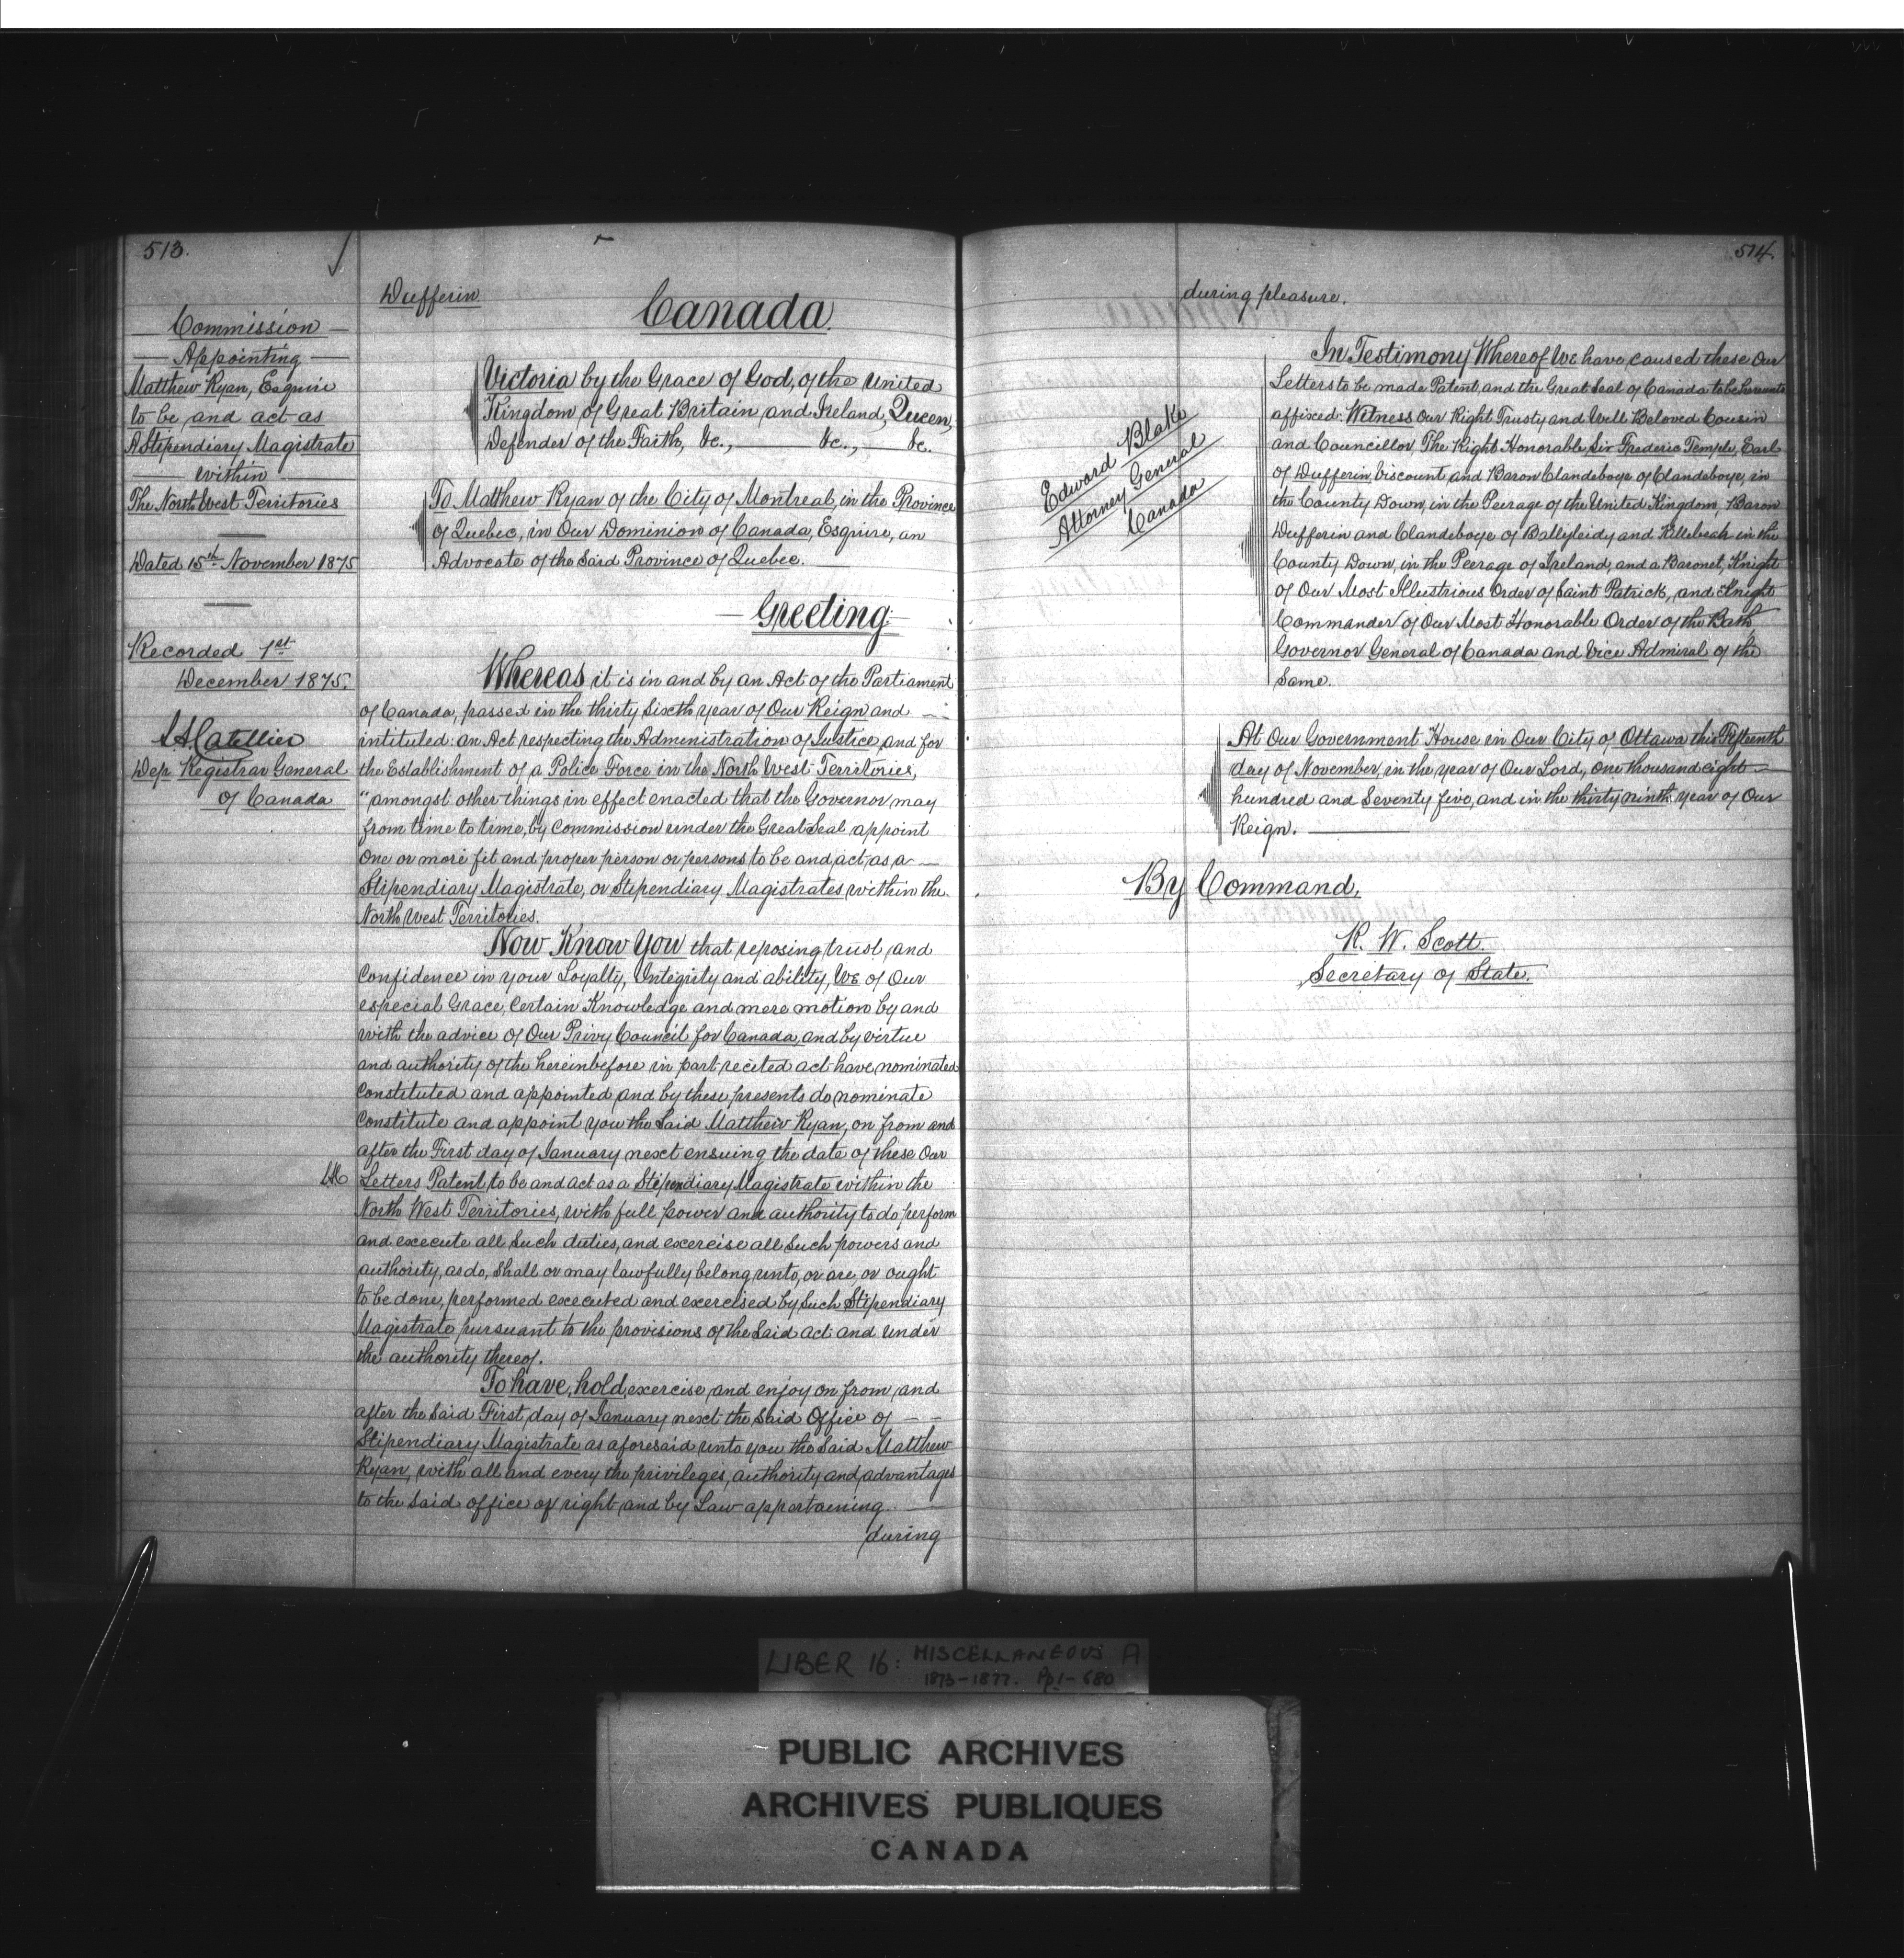 513.
Commission
Appointing
Matthew Ryan, Esquire
to be and act as
A Stipendiary Magistrate
within
The North West Territories
Dated 15th November 1875
Recorded 1st
December 1875.
Dep Registrar General
of Canada
Dufferin
Canada
Victoria by the Grace of God, of the United
Kingdom of Great Britain and Ireland, Queen,
Defender of the Faith, &c., — &c., — &c.
To Matthew Ryan of the City of Montreal, in the Province
of Quebec, in Our Dominion of Canada, Esquire, an
Advocate of the Said Province of Quebec.
— Greeting —
Whereas it is in and by an Act of the Parliament
of Canada, passed in the thirty Sixth year of Our Reign and —
intituled: an Act respecting the Administration of Justice, and for
the Establishment of a Police Force in the North West Territories,
"amongst other things in effect enacted that the Governor may
from time to time, by Commission under the Great Seal appoint
One or more fit and proper person or persons to be and act as a —
Stipendiary Magistrate, or Stipendiary Magistrates within the
North West Territories.
Now Know You that reposing trust and
Confidence in your Loyalty, Integrity and ability, We of Our
especial Grace, Certain Knowledge and mere motion by and
with the advice of Our Privy Council for Canada, and by virtue
and authority of the hereinbefore in part recited act have nominated
Constituted and appointed and by these presents do nominate
Constitute and appoint you the Said Matthew Ryan, on from and
after the First day of January next ensuing the date of these Our
Letters Patent, to be and act as a Stipendiary Magistrate within the
North West Territories, with full power and authority to do perform
and execute all Such duties, and exercise all Such powers and
authority, as do, Shall or may lawfully belong unto, or are, or ought
to be done, performed executed and exercised by Such Stipendiary
Magistrate pursuant to the provisions of the Said act and under
the authority thereof.
To have, hold, exercise and enjoy on from and
after the Said First day of January next the Said Office of — —
Stipendiary Magistrate as aforesaid unto you the Said Matthew
Ryan, with all and every the privileges, authority and advantages
to the Said office of right and by Law appertaining. —
during
514
during pleasure.
Edward Blake
Attorney General
Canada
In Testimony Whereof We have caused these Our
Letters to be made Patent, and the Great Seal of Canada to be hereunto
affixed: Witness Our Right Trusty and Well Beloved Cousin
and Councillor The Right Honorable Sir Frederic Temple, Earl
of Dufferin, Viscount and Baron Clandeboye of Clandeboye, in
the County Down, in the Peerage of the United Kingdom, Baron
Dufferin and Clandeboye of Ballyleidy and Killeleah in the
County Down, in the Peerage of Ireland, and a Baronet, Knight
of Our Most Illustrious Order of Saint Patrick, and Knight
Commander of Our Most Honorable Order of the Bath
Governor General of Canada and Vice Admiral of the
Same.
At Our Government House in Our City of Ottawa this Fifteenth
day of November, in the year of Our Lord, One thousand eight —
hundred and Seventy five, and in the thirty ninth year of Our
Reign. —
By Command,
R. W. Scott.
Secretary of State.
LIBER 16: MISCELLANEOUS A
1873-1877. Pp 1-680
PUBLIC ARCHIVES
ARCHIVES PUBLIQUES
CANADA